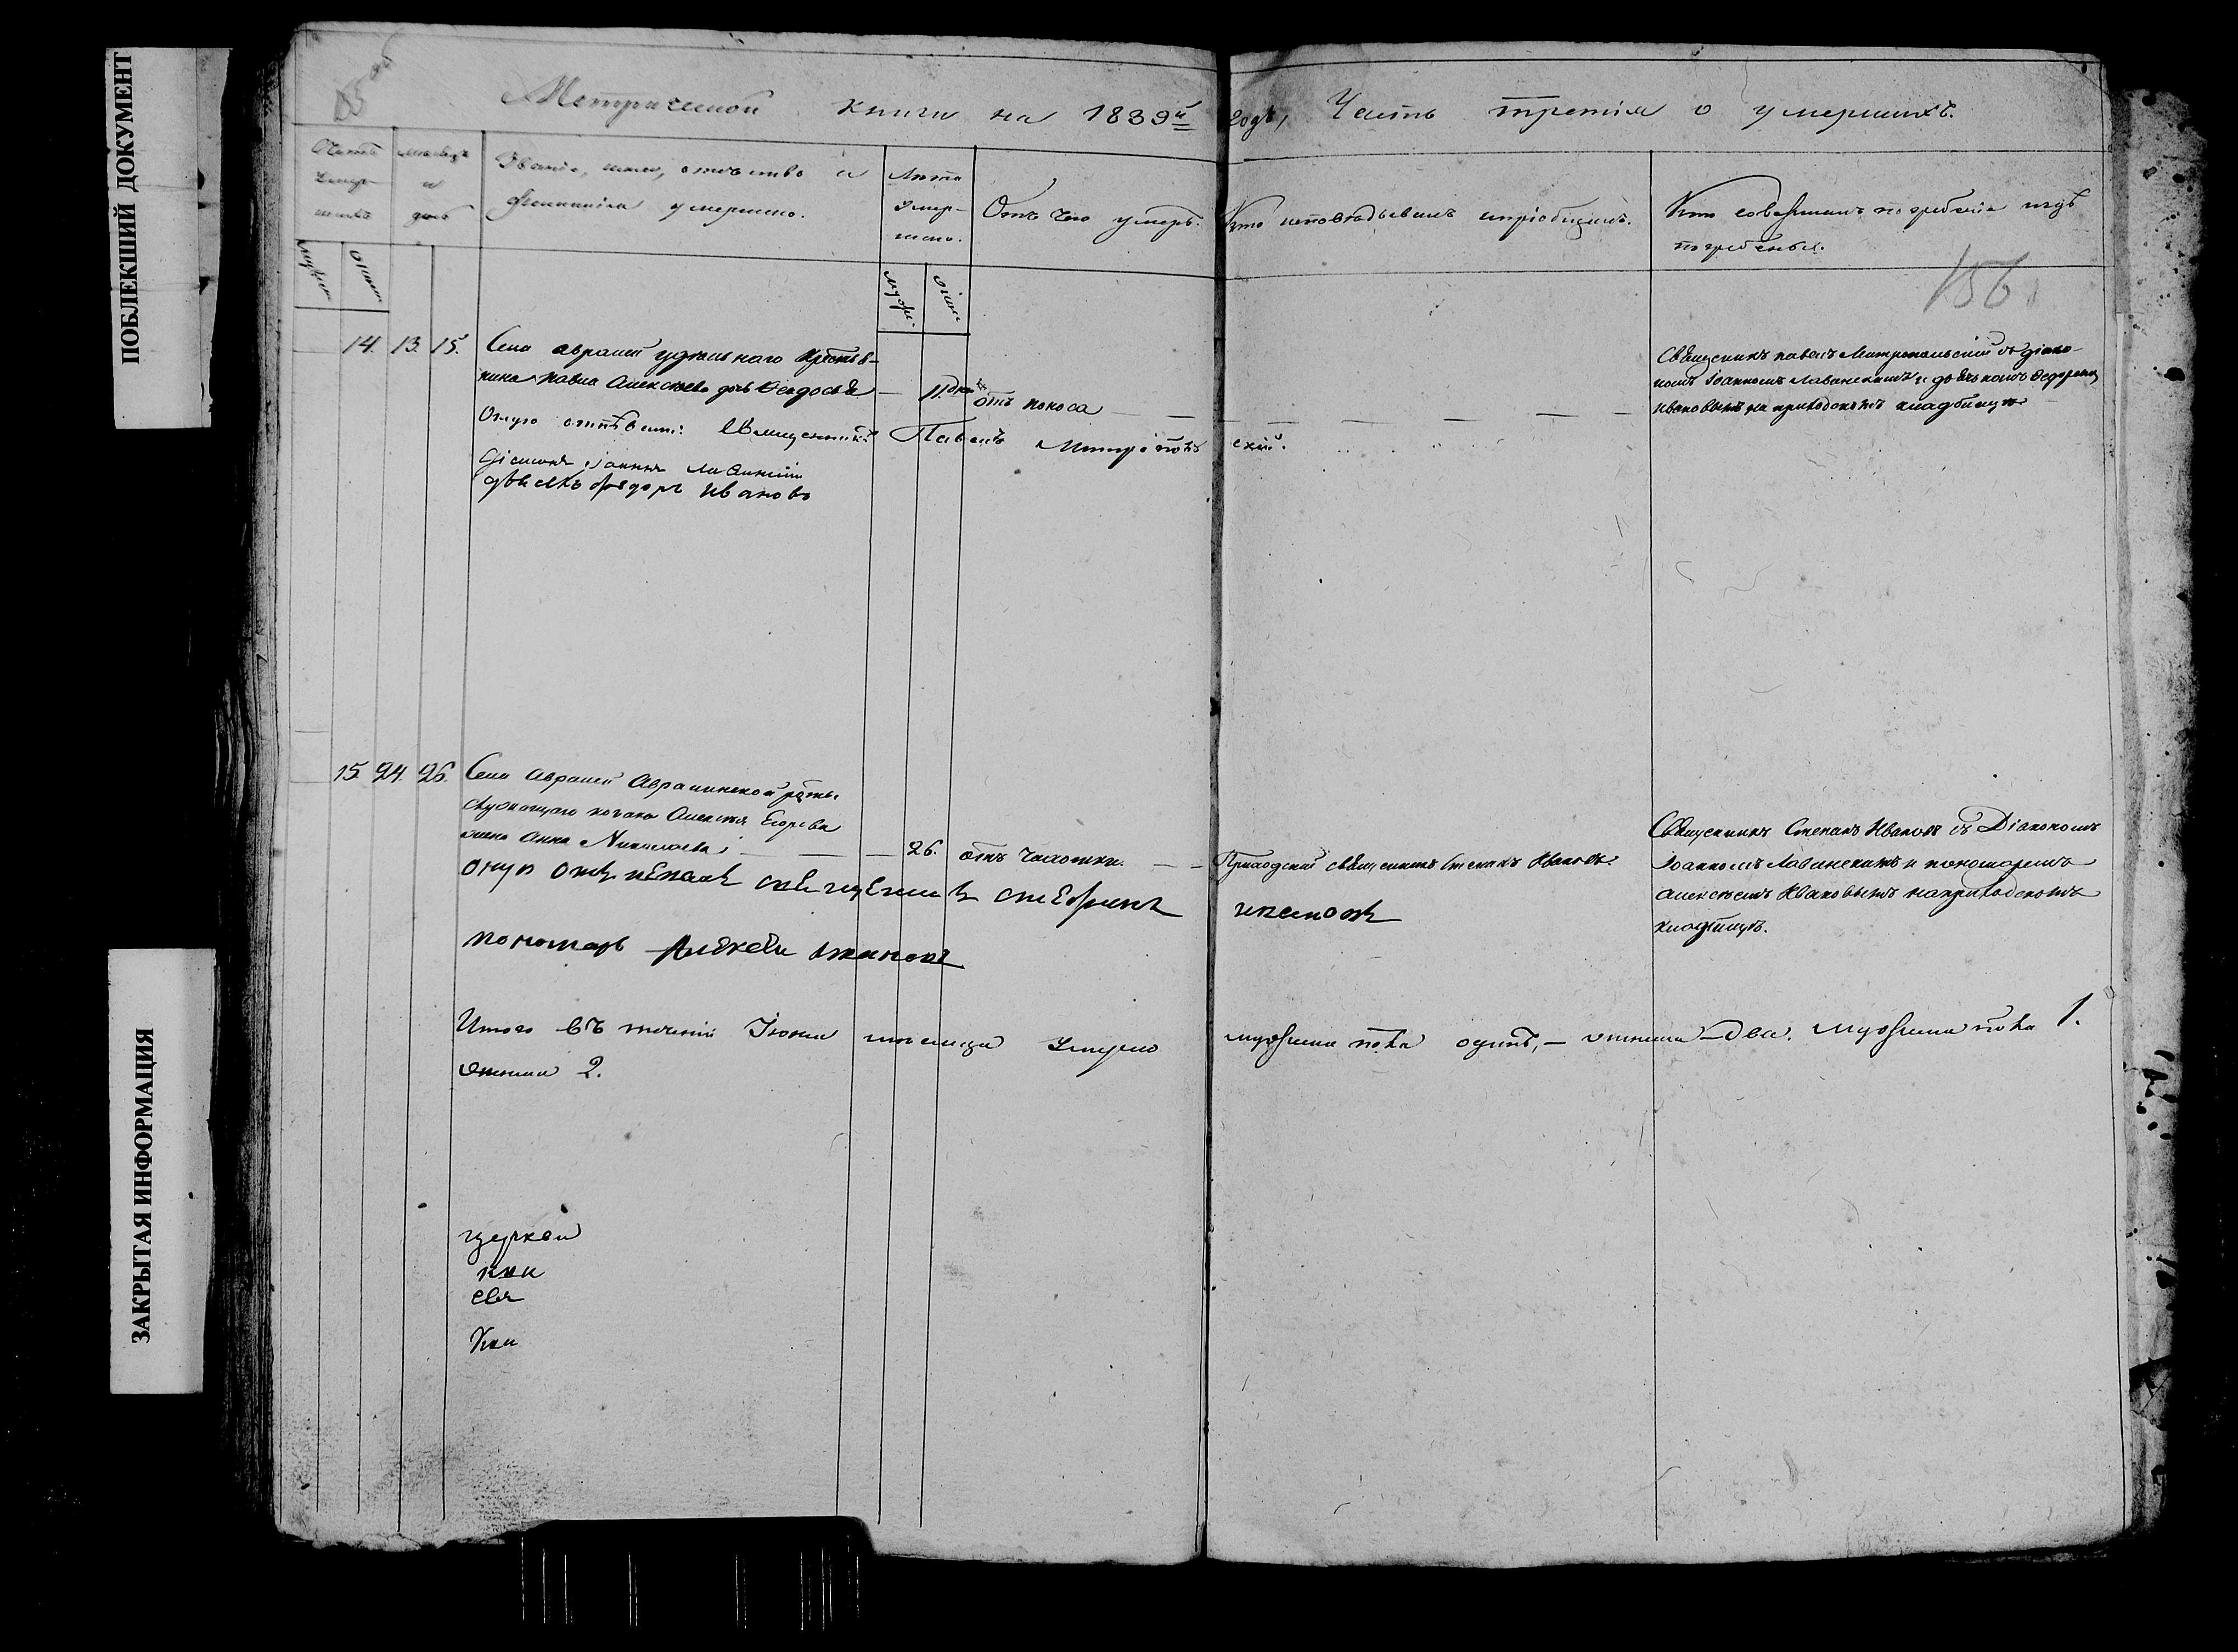 ПОБЛЕКШИЙ ДОКУМЕНТ
ЗАКРЫТАЯ ИНФОРМАЦИЯ
Метрической книги на 1839й годъ, Часть третія о умершихъ.
Мѣсяцъ и день
Званіе, имя, отчество и фамилія умершаго.
Лѣта умершаго.
Отъ чего умеръ.
Кто исповѣдывалъ и пріобщалъ.
Кто совершалъ погребеніе и гдѣ погребены.
156
14. 13. 15.
Села Авралей удѣльнаго крестья-
нина Павла Алексѣева дочь Ѳеодосья
отъ поноса
Священникъ Павелъ Митропольскій съ діако-
номъ Іоанномъ Лавинскимъ и дьячкомъ Ѳедоромъ
Ивановымъ на приходскомъ кладбищѣ
Оную отпѣвали: Священникъ Павелъ
Діаконъ Іоаннъ Лавинскій
дьячекъ Ѳедоръ Ивановъ
15. 24. 26.
Села Авралей Авралинской
служащаго Алексѣя Егорова
жена Анна Николаева
26. отъ чахотки.
Приходскій священникъ Стефанъ Ивановъ
Священникъ Стефанъ Ивановъ съ Діакономъ
Іоанномъ Лавинскимъ и пономаремъ
Алексѣемъ Ивановымъ на приходскомъ
кладбищѣ.
оную отпѣвалъ священникъ Стефанъ Ивановъ
пономарь Алексѣй Ивановъ
Итого въ теченіи Іюня мѣсяца умерло мужеска пола одинъ, – женска – два. Мужеска пола 1.
женска 2.
церкви
кни
свя
Кни